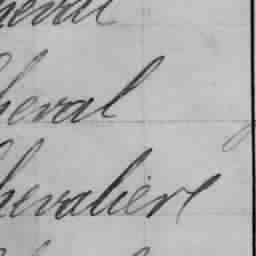 heval
heval
hevaliere